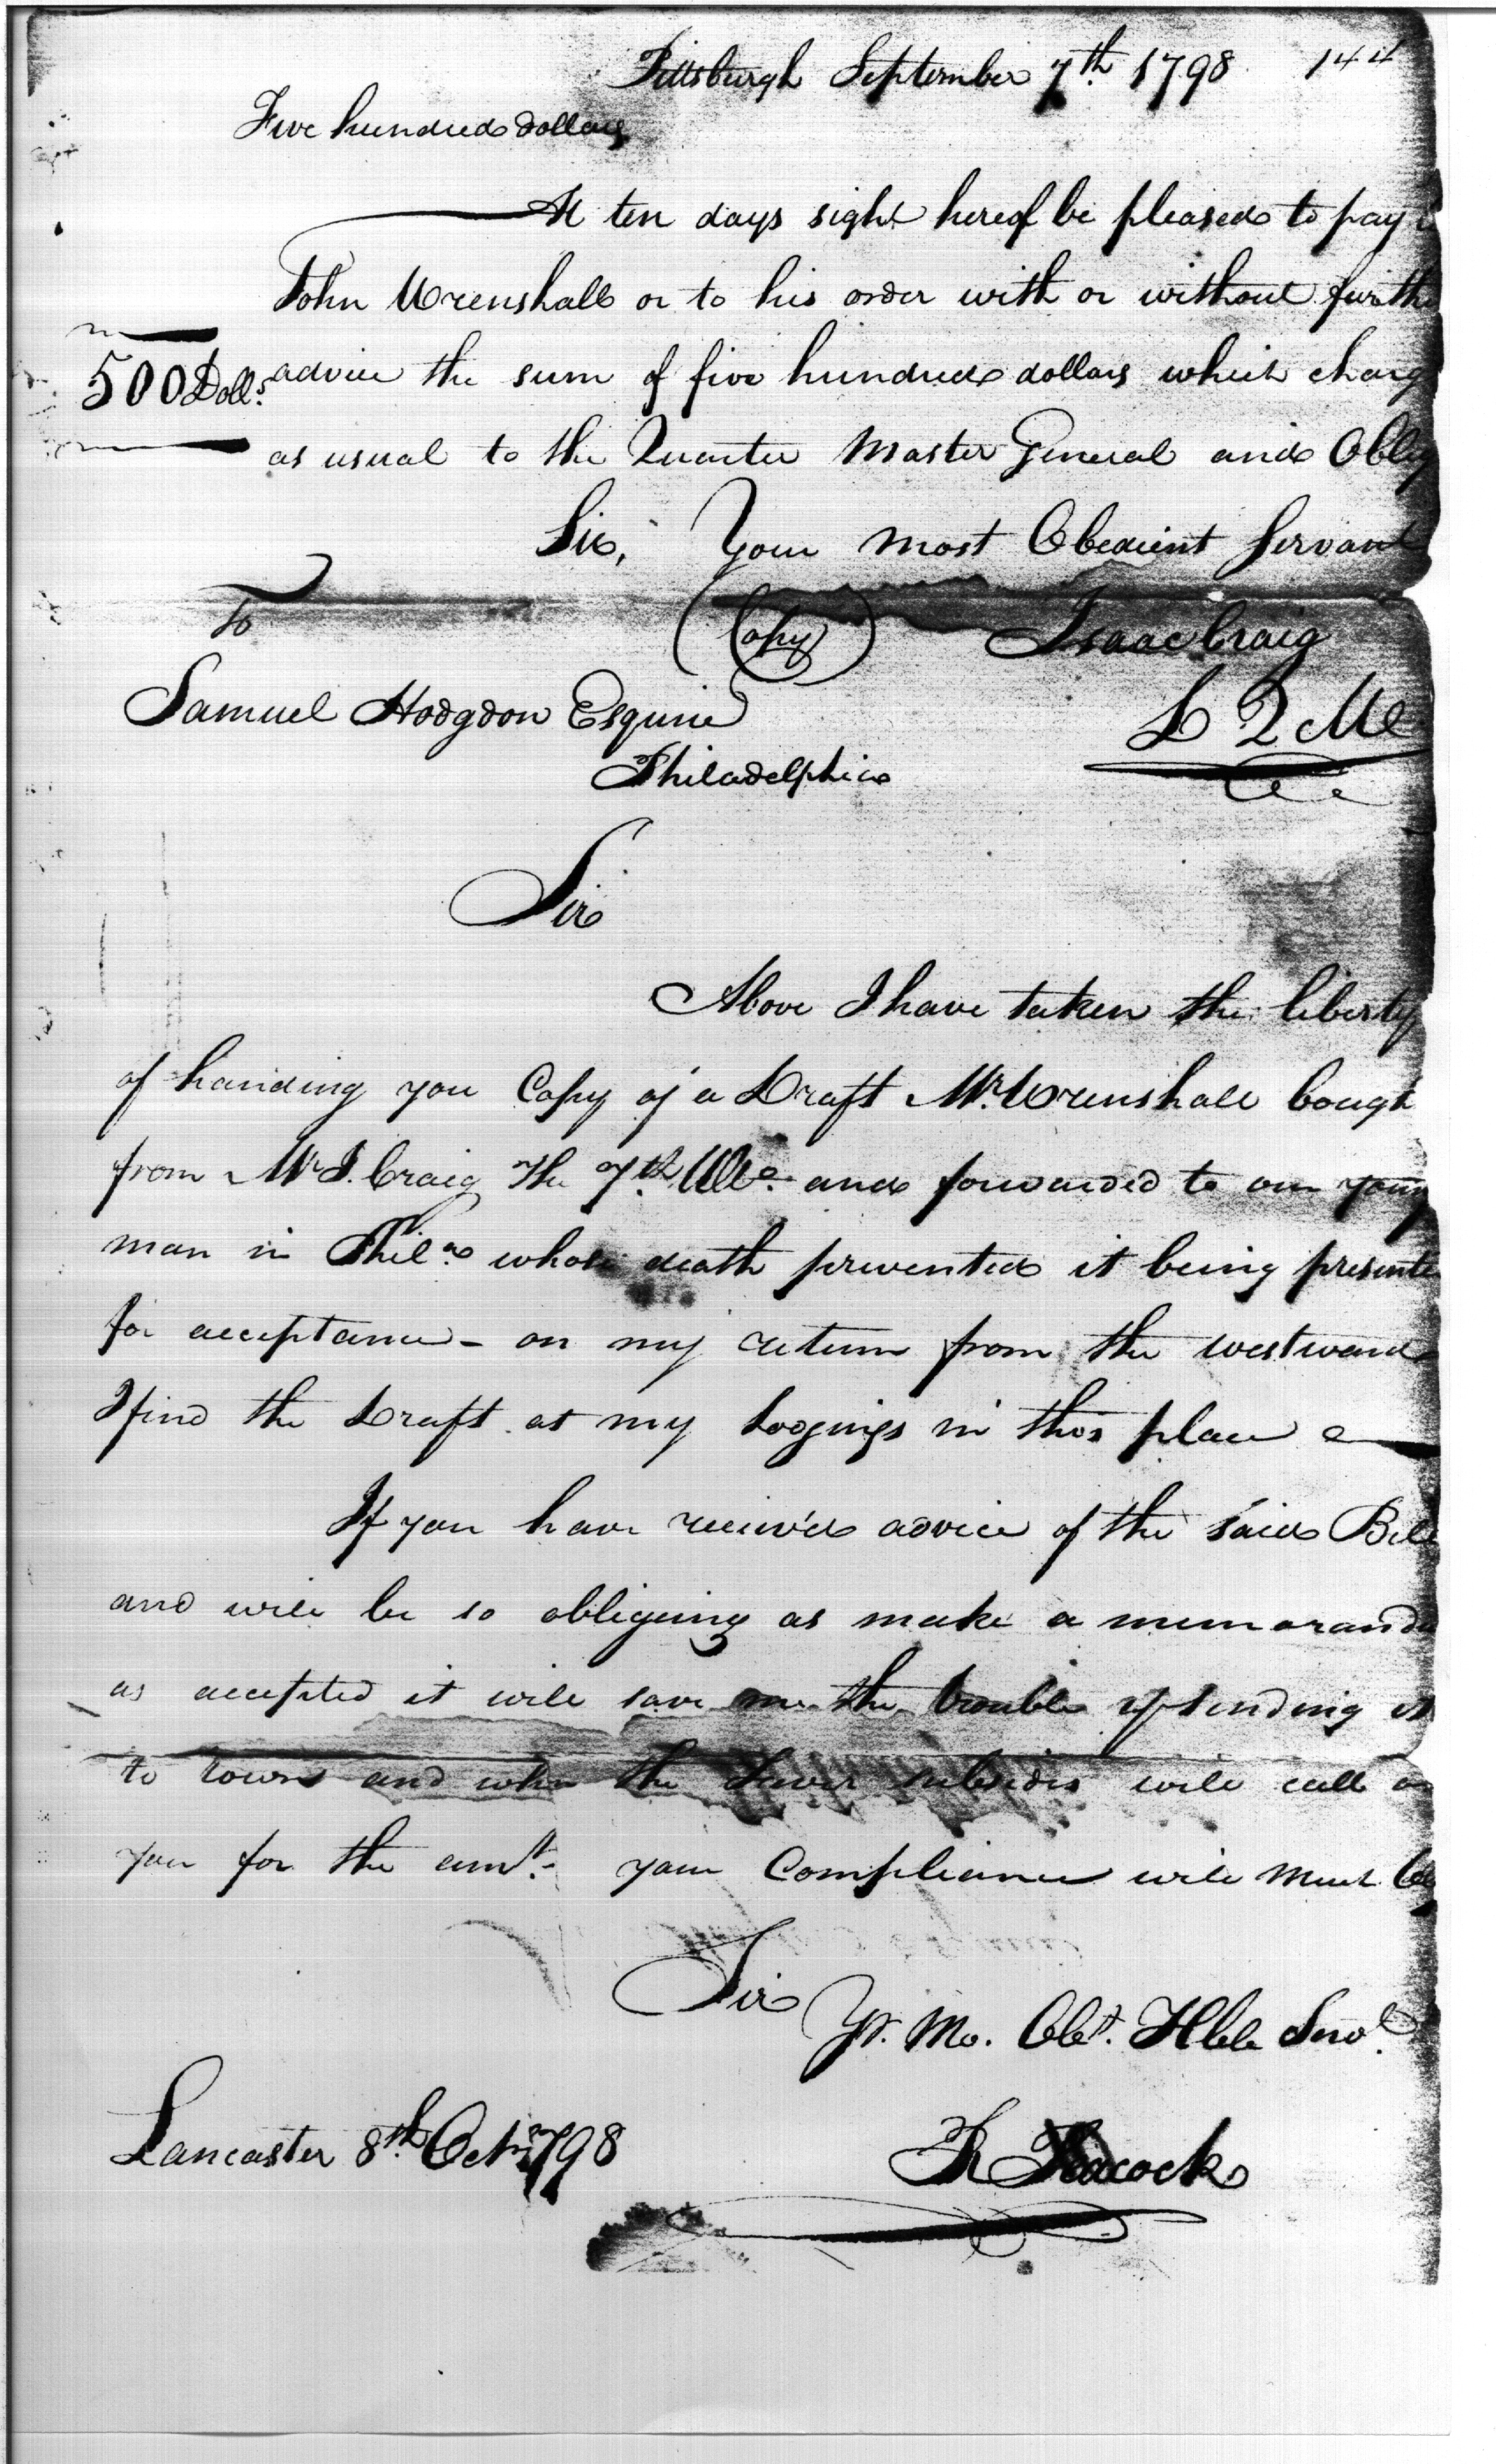 Pittsburgh September 7th 1798 144
Five hundred dollars
At ten days sight hereof be pleased to pay
John Wrenshall or to his order with or without furthe
500 Dolls. advice the sum of five hundred dollars which charg
as usual to the Quarter Master General and Oblig
Sir, Your most Obedient Servant
To (Copy) Isaac Craig
Samuel Hodgdon Esquire D Q M
Philadelphia
Sir
Above I have taken the liberty
of handing you Copy of a Draft Mr. Wrenshall bough
from Mr I. Craig the 7th. Ulto. and forwarded to our young
man in Phila. whose death prevented it being presente
for acceptance - on my return from the westward
I find the Draft at my Lodgings in this place
If you have receiv'd advice of the said Bill
and will be so obligeing as make a memorandu
as accepted it will save me the trouble of sending it
to town and when the fever subsides will call on
you for the amt. your Compliance will much Obg
Sir
Yr. Mo. Obt. Hble Servt.
Lancaster 8th. Octr. 1798 R Peacock